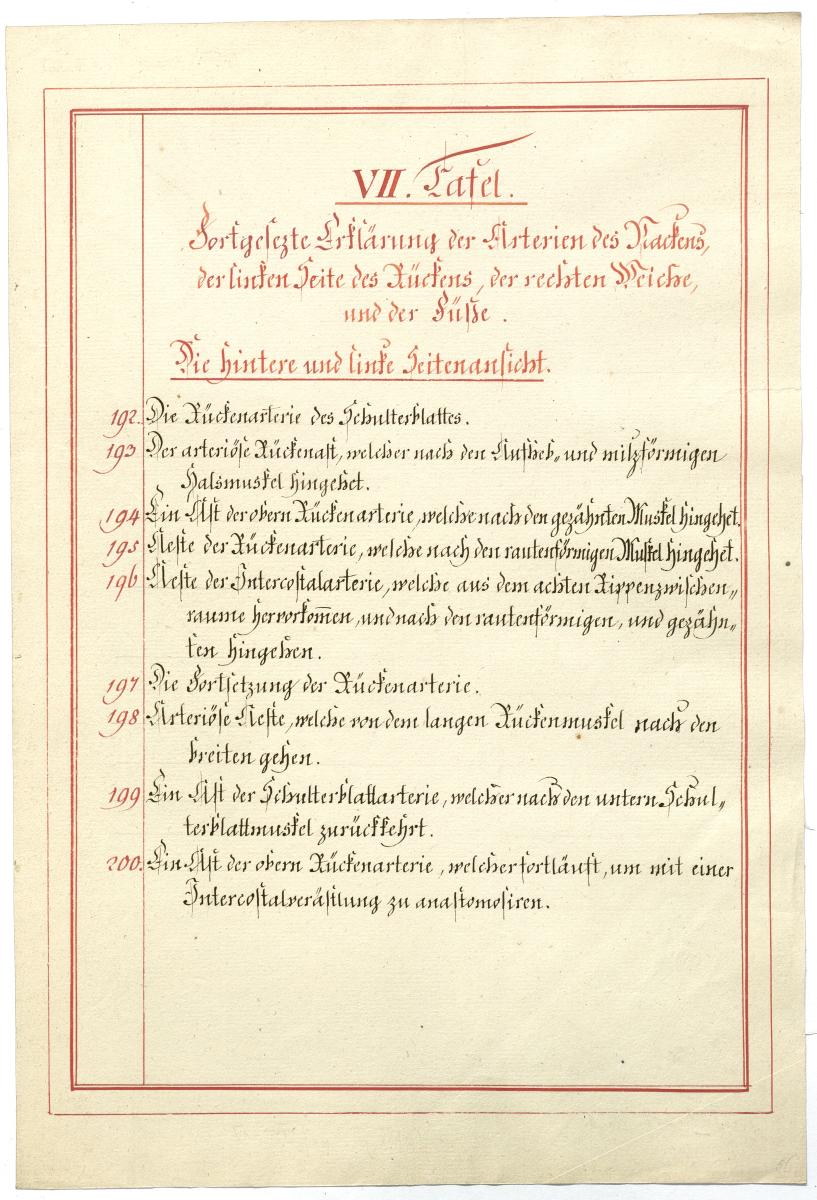 VII. Tafel.
Fortgesezte Erklärung der Arterien des Nackens,
der linken Seite des Rückens, der rechten Weiche,
und der Füße.
Die hintere und linke Seitenansicht.
192. Die Rückenarterie des Schulterblattes.
193 Der arteriöse Rückenast, welcher nach den Aufheb- und milzförmigen
Halsmuskel hingehet.
194 Ein Ast der obern Rückenarterie, welche nach den gezähnten Muskel hingehet.
195 Aeste der Rückenarterie, welche nach den rautenförmigen Muskel hingehet.
196 Aeste der Intercostalarterie, welche aus dem achten Rippenzwischen-
raume hervorkom̅en, und nach den rautenförmigen, und gezähn-
ten hingehen.
197 Die Fortsetzung der Rückenarterie.
198 Arteriöse Aeste, welche von dem langen Rückenmuskel nach den
breiten gehen.
199 Ein Ast der Schulterblattarterie, welcher nach den untern Schul-
terblattmuskel zurückkehrt.
200. Ein Ast der obern Rückenarterie, welcher fortläuft, um mit einer
Intercostalverästlung zu anastomosiren.